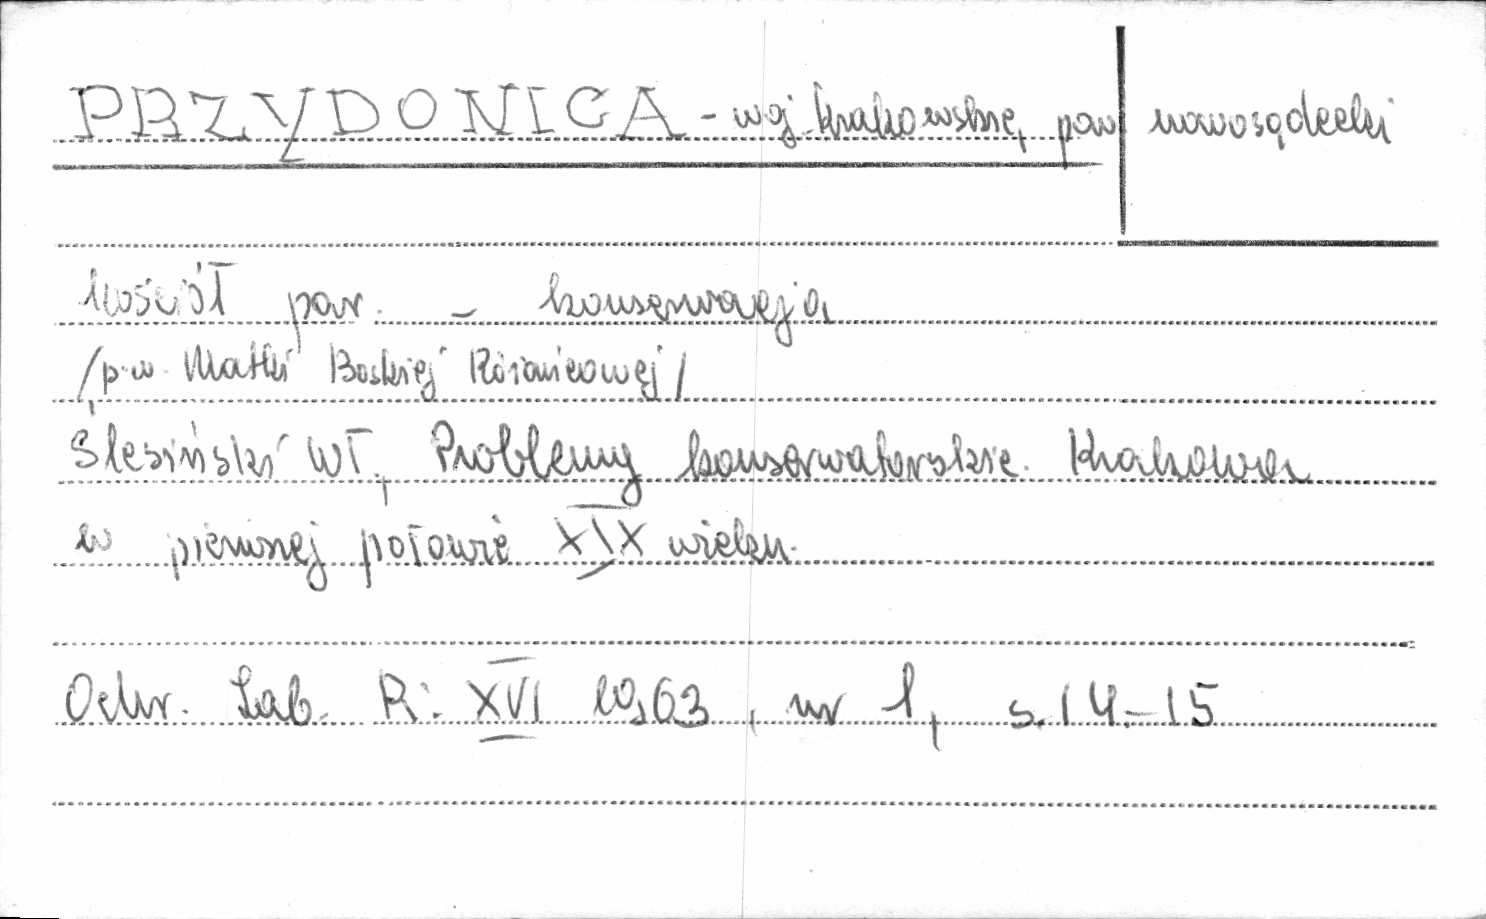 PRZYDONICA - woj. krakowskie, pow nowosądecki
kościół par. - konserwacja
/p.w. Matki Boskiej Różańcowej/
Ślesiński Wł., Problemy konserwatorskie Krakowa
w pierwszej połowie XIX wieku.
Ochr. Zab. R: XVI 1963, nr 1, s. 14-15